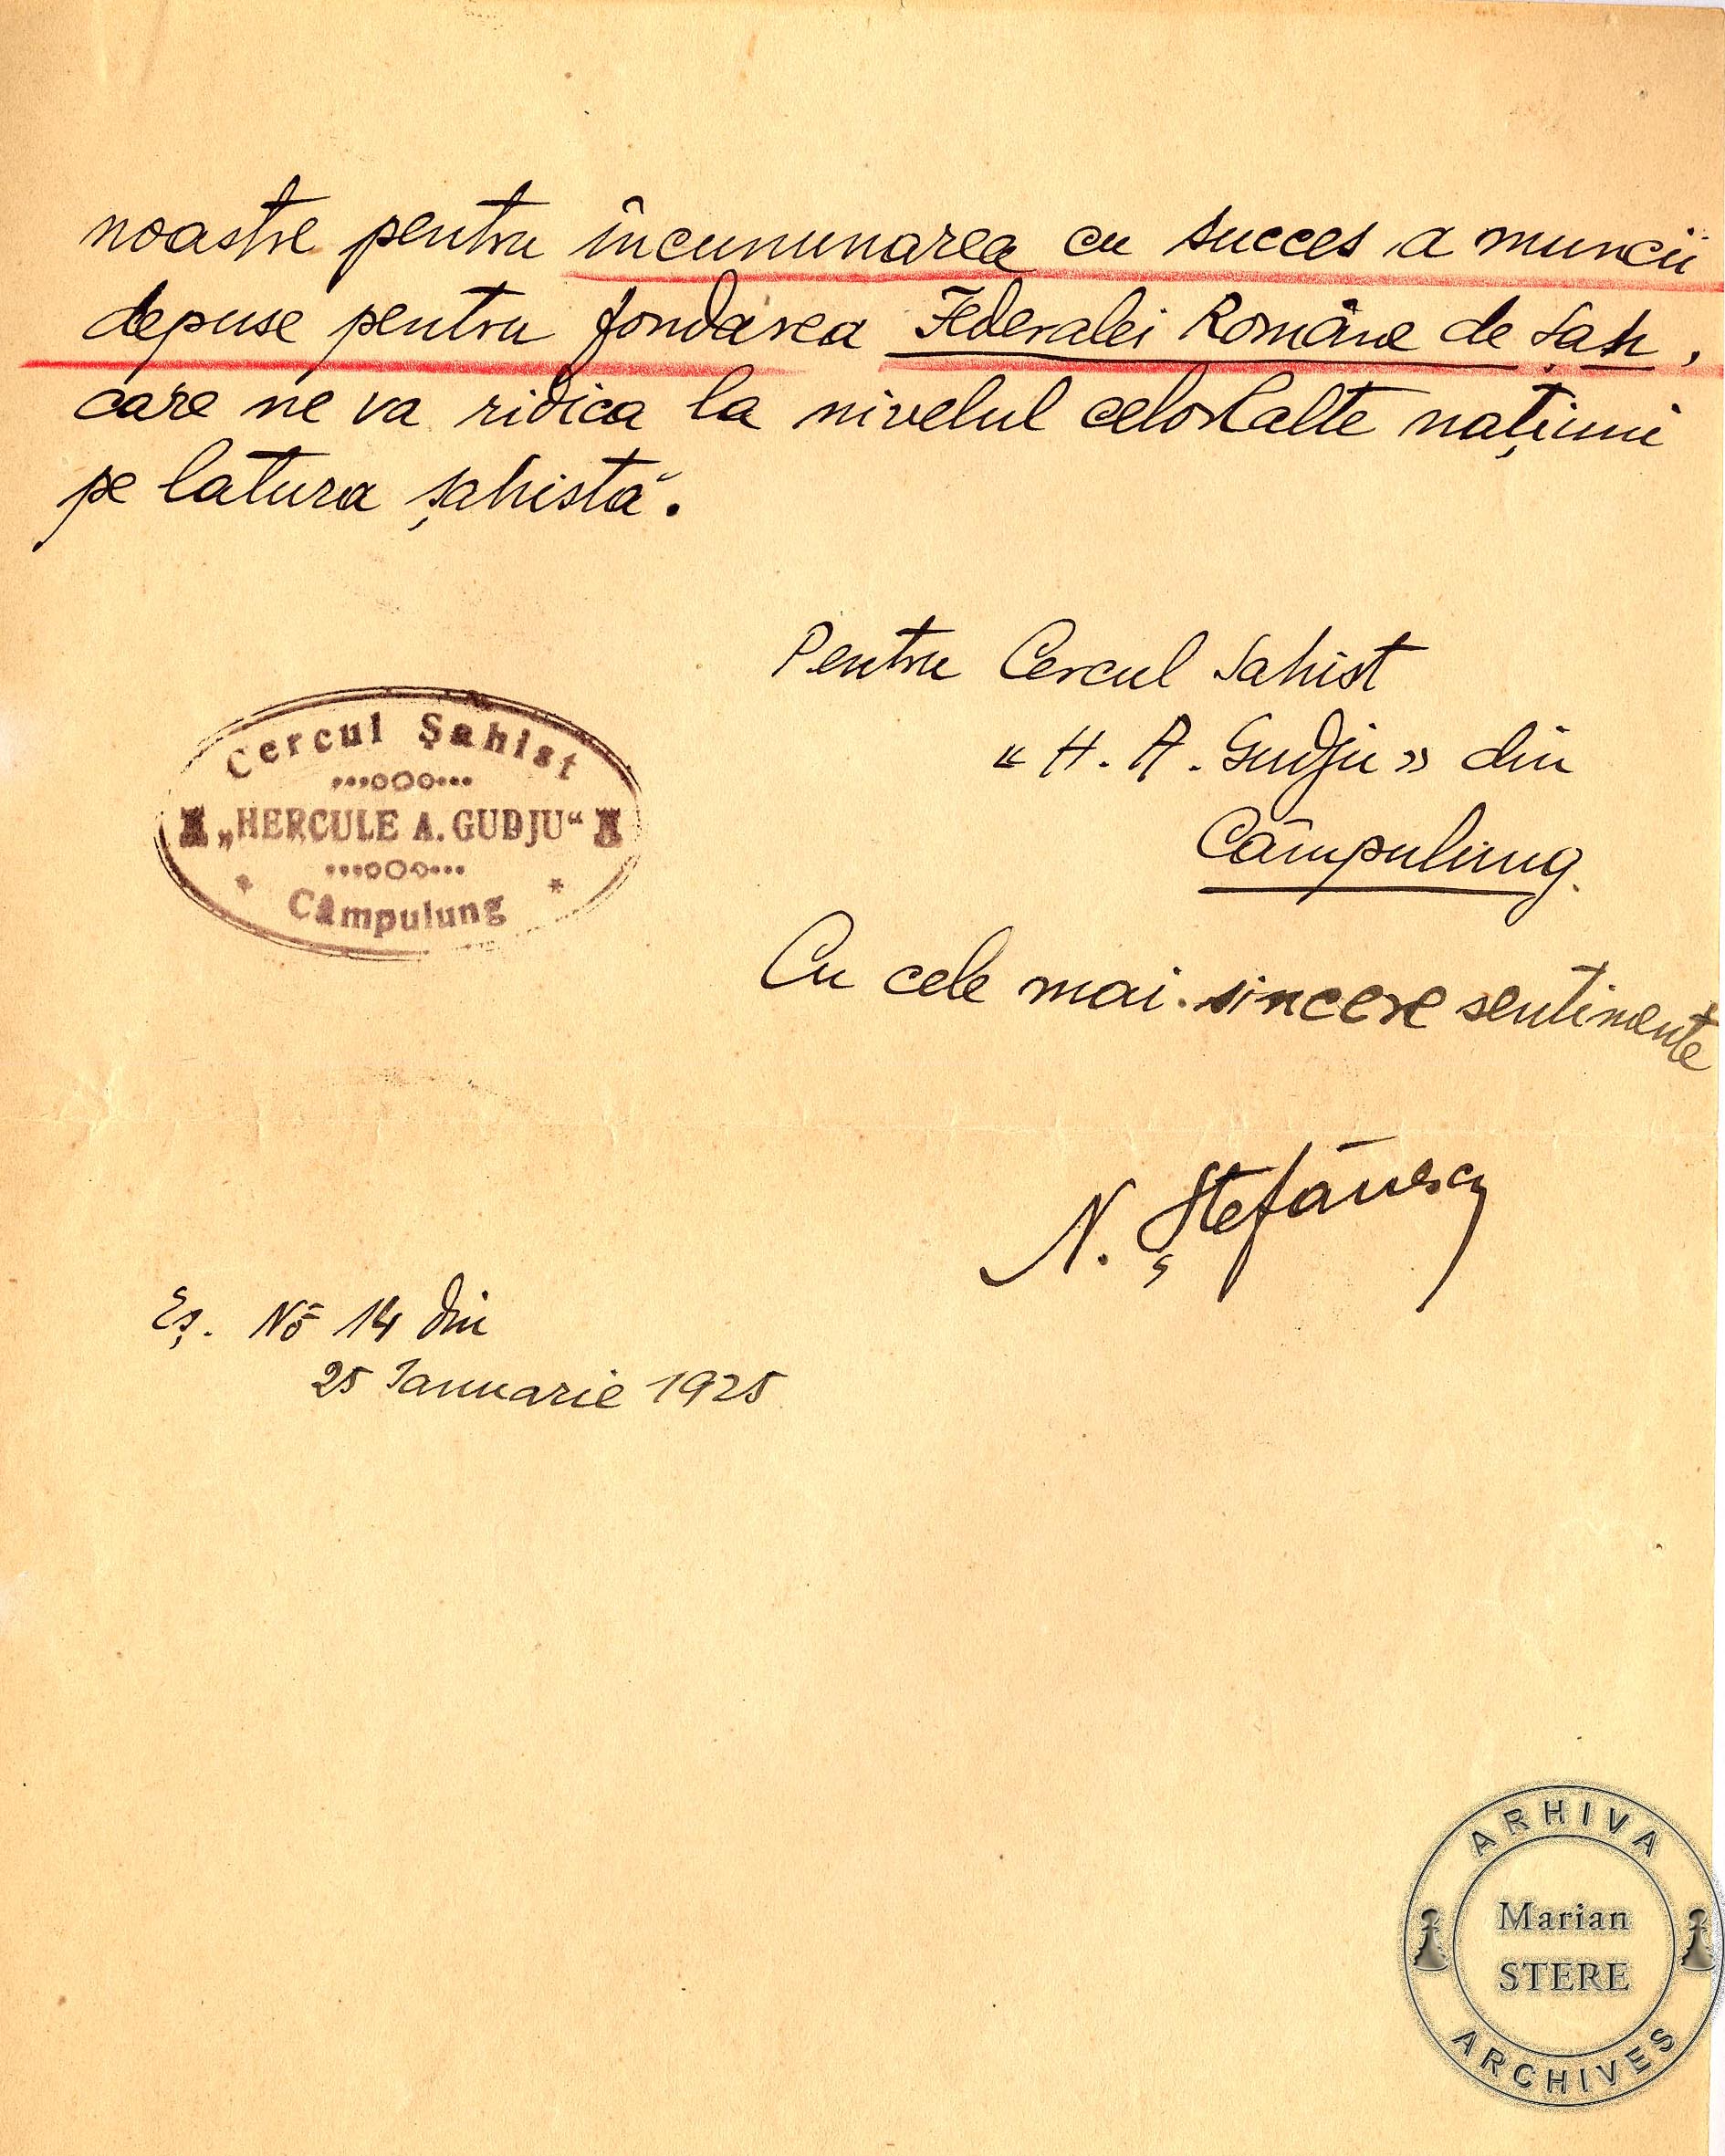 noastre pentru încununarea cu succes a muncii
depuse pentru fondarea Federalei Române de Șah,
care ne va ridica la nivelul celorlalte națiuni
pe latura șahistă.
Pentru Cercul Sahist
« H. A. Gudju » din
Câmpulung.
Cercul Șahist
„HERCULE A. GUDJU“
Câmpulung
Cu cele mai sincere sentimente
N. Ștefănescu
Eș. No 14 din
25 Ianuarie 1925
ARHIVA
Marian
STERE
ARCHIVES